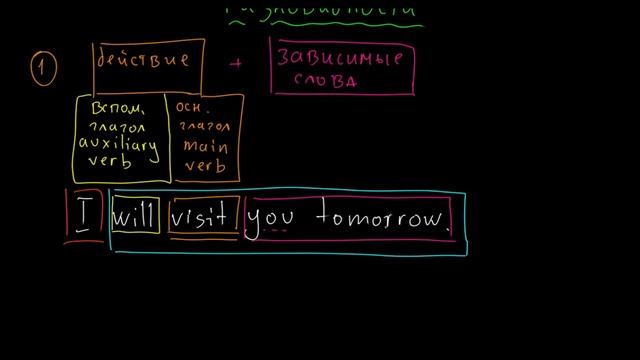 Разновидности
1 действие + зависимые слова
вспом. глагол auxiliary verb
осн. глагол main verb
I will visit you tomorrow.